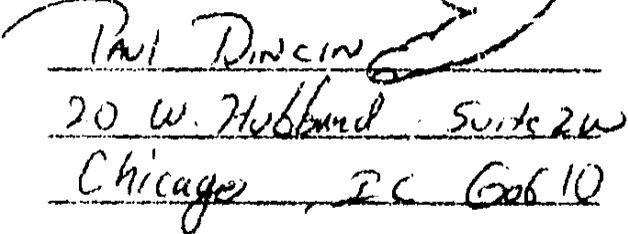 Paul Dincin
20 W. Hubbard Suite 2W
Chicago, IL 60610